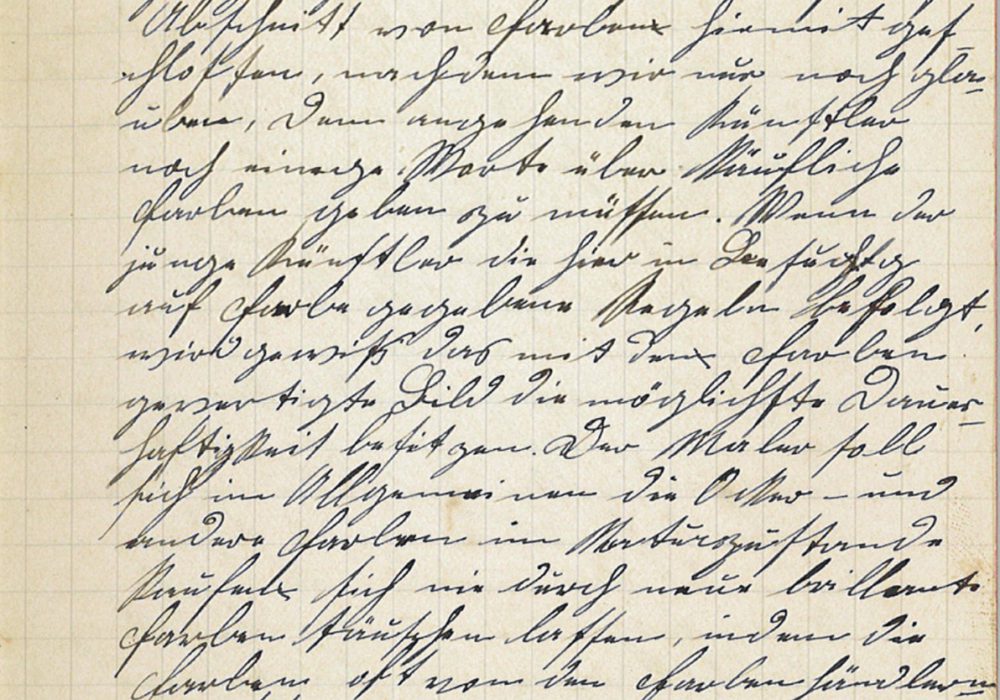 Abschnitt von Farben hiemit gesc-
hlossen, nachdem wir nur noch gla-
uben, dem angehenden Künstler
noch einige Worte über Käufliche
Farben geben zu müssen. Wenn der
junge Künstler die hier in Bezug
auf Farbe gegebene Regeln befolgt,
wird gewiß das mit den Farben
gefertigte Bild die möglichste Dauer-
haftigkeit besitzen. Der Maler soll
sich im Allgemeinen die Ocker - und
andere Farben im Naturzustande
Kaufen sich nie durch neue brillante
Farben täuschen lassen, indem die
Farben oft von den Farbenhändlern